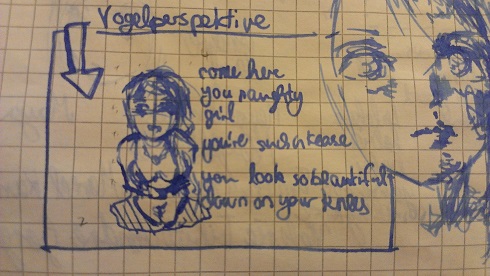 Vogelperspektive
come here
you naughty
girl
you're such a tease
you look so beautiful
down on your knees